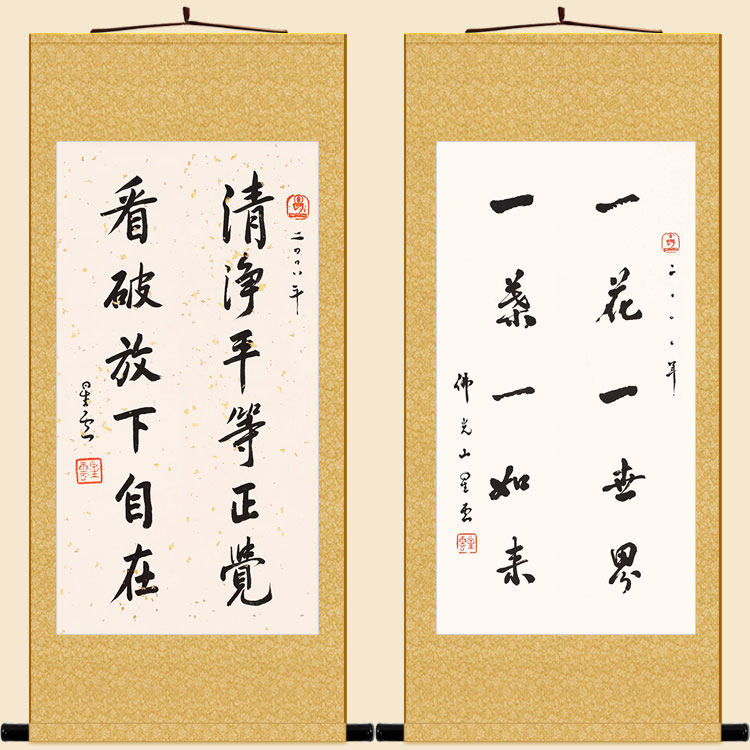 二〇〇八年
清淨平等正覺
看破放下自在
星雲
一花一世界
一葉一如来
佛光山星雲